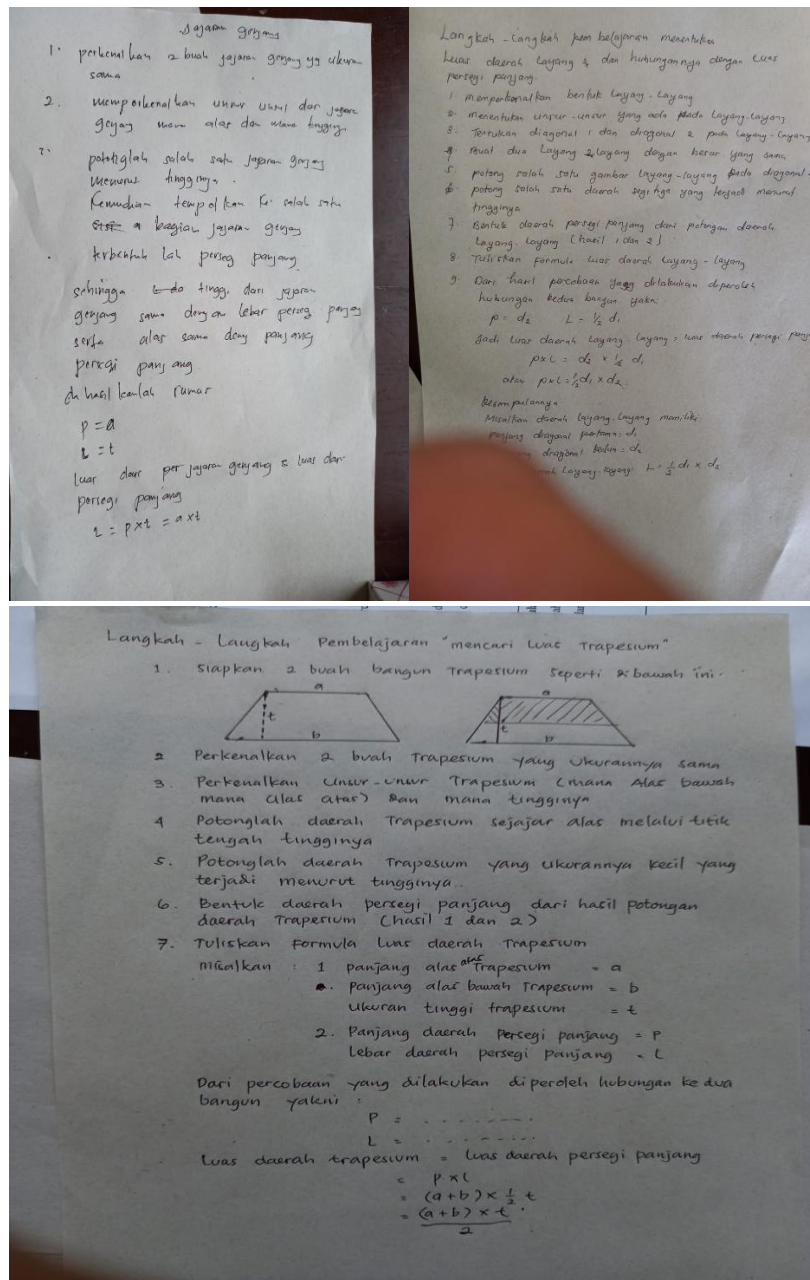 Jajaran genjang
1. perkenalkan 2 buah jajaran genjang yg ukuran
sama
2. memperkenalkan unsur unsur dari jajaran
genjang mana alas dan mana tingginya
potonglah salah satu jajaran genjang
menurut tingginya.
Kemudian tempelkan ke salah satu
bagian jajaran genjang
terbentuk lah perseg panjang
sehingga tinggi dari jajaran
genjang sama dengan lebar perseg panjang
serta alas sama deng panjang
persegi panjang
di hasil kanlah rumus
p = a
l = t
luas dari per jajaran genjang = luas dari
persegi panjang
L = p x t = a x t
Langkah - Langkah pembelajaran menentukan
Luas daerah Layang 2 dan hubungannya dengan Luas
persegi panjang.
1. memperkenalkan bentuk Layang-Layang
2. menentukan unsur-unsur yang ada pada Layang-Layang
3. Tentukan diagonal 1 dan diagonal 2 pada Layang-Layang
4. Buat dua Layang2layang dengan besar yang sama
5. potong salah satu gambar Layang-layang pada diagonal
6. potong salah satu daerah segitiga yang terjadi menurut
tingginya
7. Bentuk daerah persegi panjang dari potongan daerah
Layang-Layang (hasil 1 dan 2)
8. Tuliskan formula luas daerah Layang-Layang
9. Dari hasil percobaan yang dilakukan diperoleh
hubungan kedua bangun yakni:
p = d2 L = 1/2 d1
Jadi Luas daerah Layang-Layang = luas daerah persegi panj
p x L = d2 x 1/2 d1
atau p x L = 1/2 d1 x d2
Kesimpulannya
Misalkan daerah Layang-Layang memiliki
panjang diagonal pertama = d1
diagonal kedua = d2
Layang-Layang L = 1/2 d1 x d2
Langkah - Langkah Pembelajaran "mencari Luas Trapesium"
1. Siapkan 2 buah bangun Trapesium seperti di bawah ini.
a
t
b
a
t
b
2 Perkenalkan 2 buah Trapesium yang ukurannya sama
3. Perkenalkan Unsur-unsur Trapesium (mana Alas bawah
mana alas atas) dan mana tingginya
4 Potonglah daerah Trapesium sejajar alas melalui titik
tengah tingginya
5. Potonglah daerah Trapesium yang ukurannya kecil yang
terjadi menurut tingginya..
6. Bentuk daerah persegi panjang dari hasil potongan
daerah Trapesium (hasil 1 dan 2)
7. Tuliskan Formula luas daerah Trapesium
misalkan : 1 panjang alas atas Trapesium = a
panjang alas bawah Trapesium = b
ukuran tinggi trapesium = t
2. Panjang daerah Persegi panjang = P
Lebar daerah persegi panjang = L
Dari percobaan yang dilakukan diperoleh hubungan ke dua
bangun yakni :
P = .........
L = .........
Luas daerah trapesium = Luas daerah persegi panjang
= P x L
= (a+b) x 1/2 t
= (a+b) x t
2